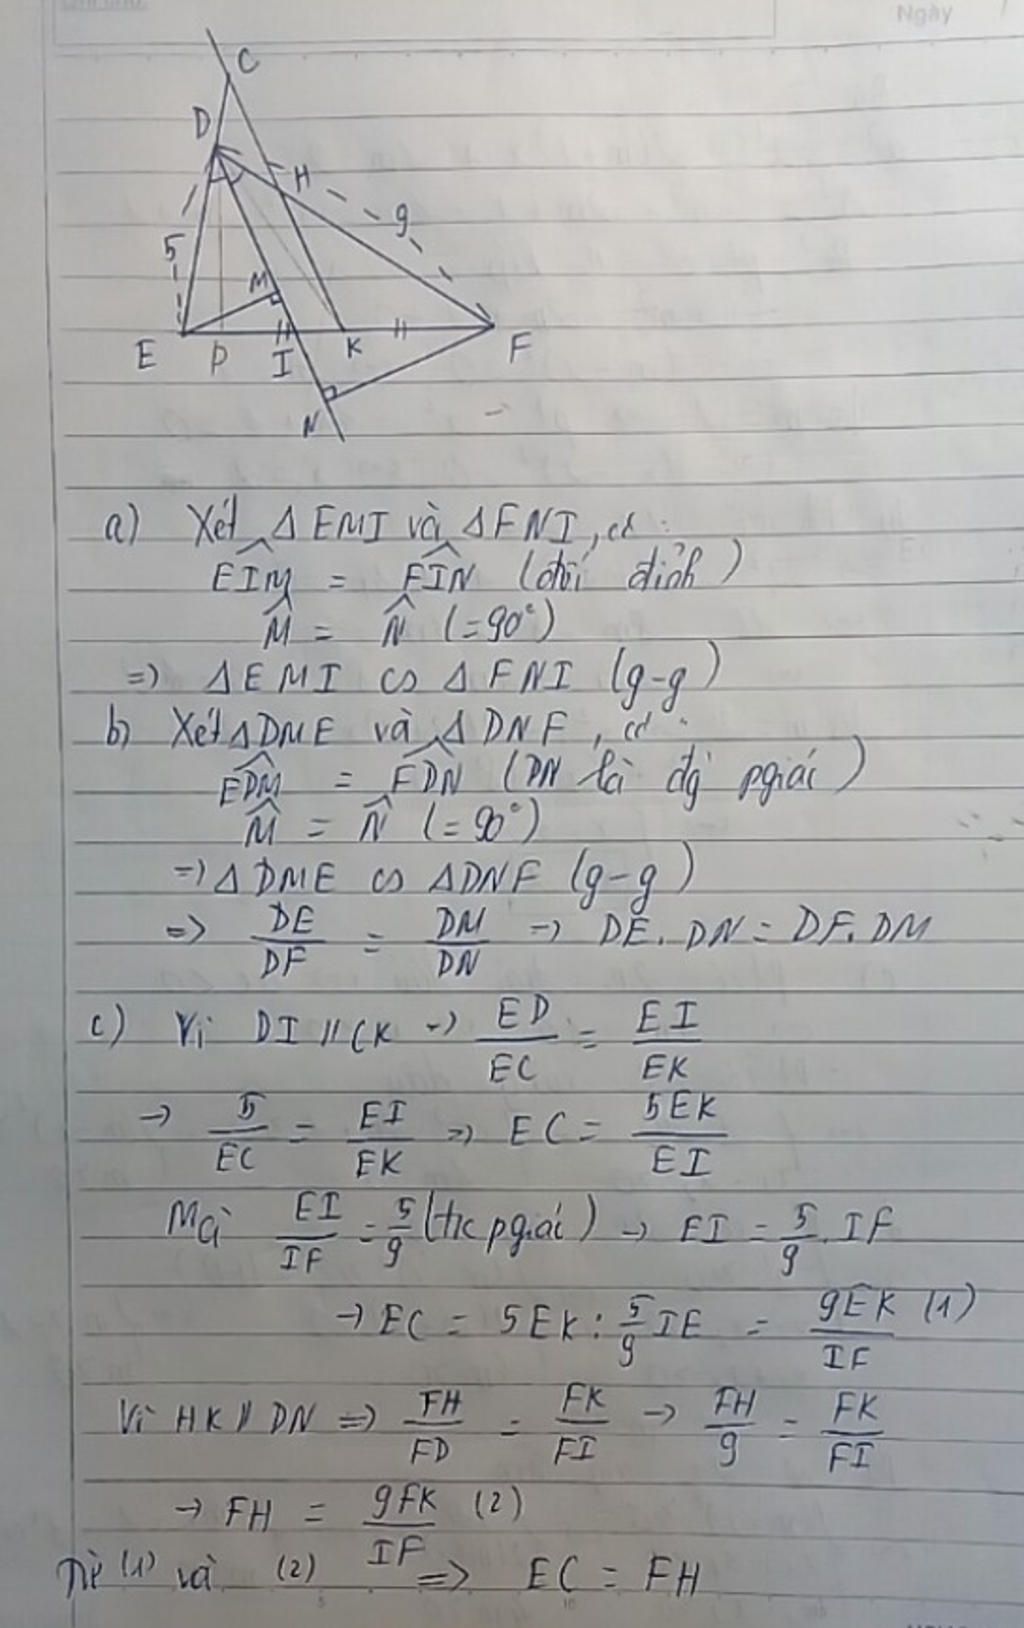 Ngày
C
D
H
9
5
M
E P I K F
N
a) Xét Δ EMI và Δ FNI, có:
EIM = FIN (đối đỉnh)
M = N (=90°)
=> Δ EMI ∽ Δ FNI (g-g)
b) Xét Δ DME và Δ DNF, có:
EDM = FDN (DN là đg pgiác)
M = N (=90°)
=> Δ DME ∽ Δ DNF (g-g)
=> DE/DF = DM/DN => DE. DN = DF. DM
c) Vì DI // CK => ED/EC = EI/EK
-> 5/EC = EI/EK => EC = 5EK/EI
Mà EI/IF = 5/9 (t/c pgiác) -> EI = 5/9 . IF
-> EC = 5EK : 5/9 IE = 9EK/IF (1)
Vì HK // DN => FH/FD = FK/FI -> FH/9 = FK/FI
-> FH = 9FK/IF (2)
Từ (1) và (2) => EC = FH